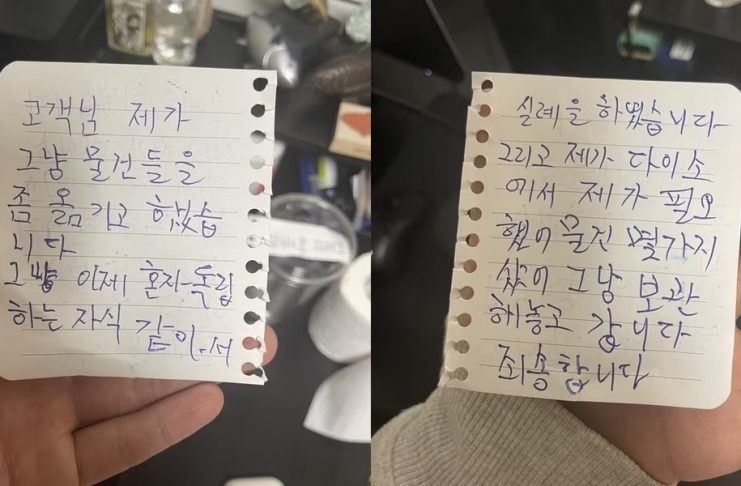 고객님 제가
그냥 물건들을
좀 옮기고 했습
니다
그냥 이제 혼자 독립
하는 자식 같아서
실례을 하였습니다
그리고 제가 다이소
에서 제가 필요
했어 물건 몇가지
샀어 그냥 보관
해놓고 갑니다
죄송합니다